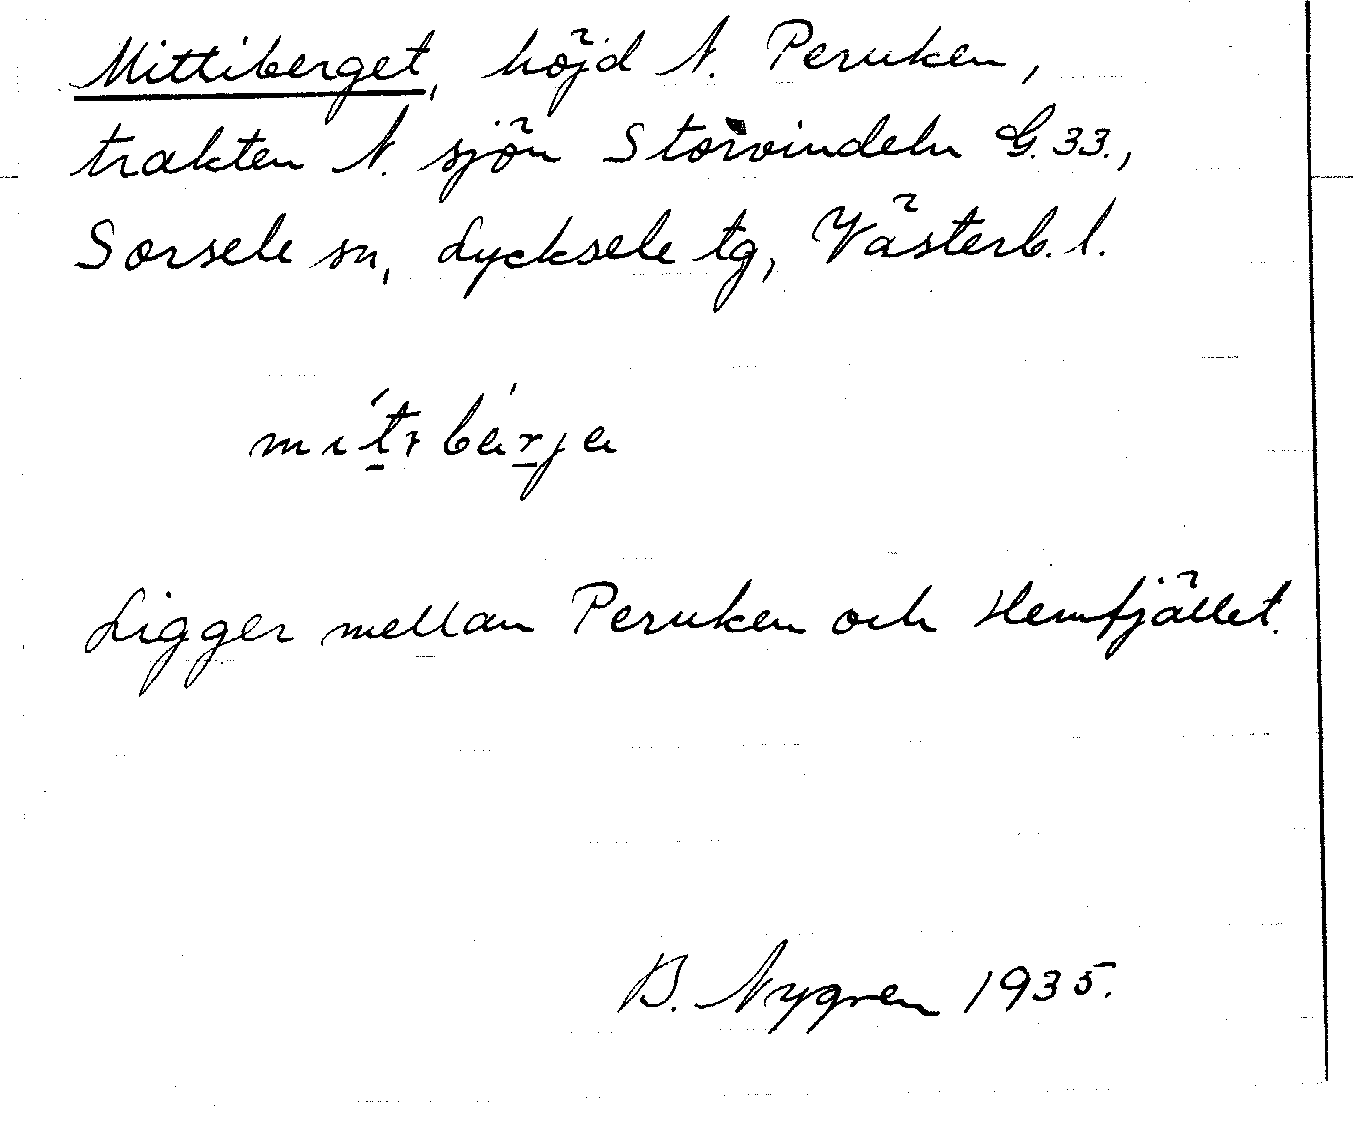 Mittiberget, höjd N. Peruken,
trakten N. sjön Storvindeln G. 33.,
Sorsele sn, Lycksele tg, Västerb. l.
Ligger mellan Peruken och Hemfjället.
B. Nygren 1935.